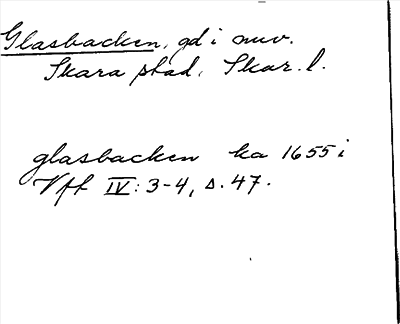 Glasbacken, gd i nuv.
Skara stad, Skar. l.
glasbacken ka 1655 i
Vff IV: 3-4, s. 47.